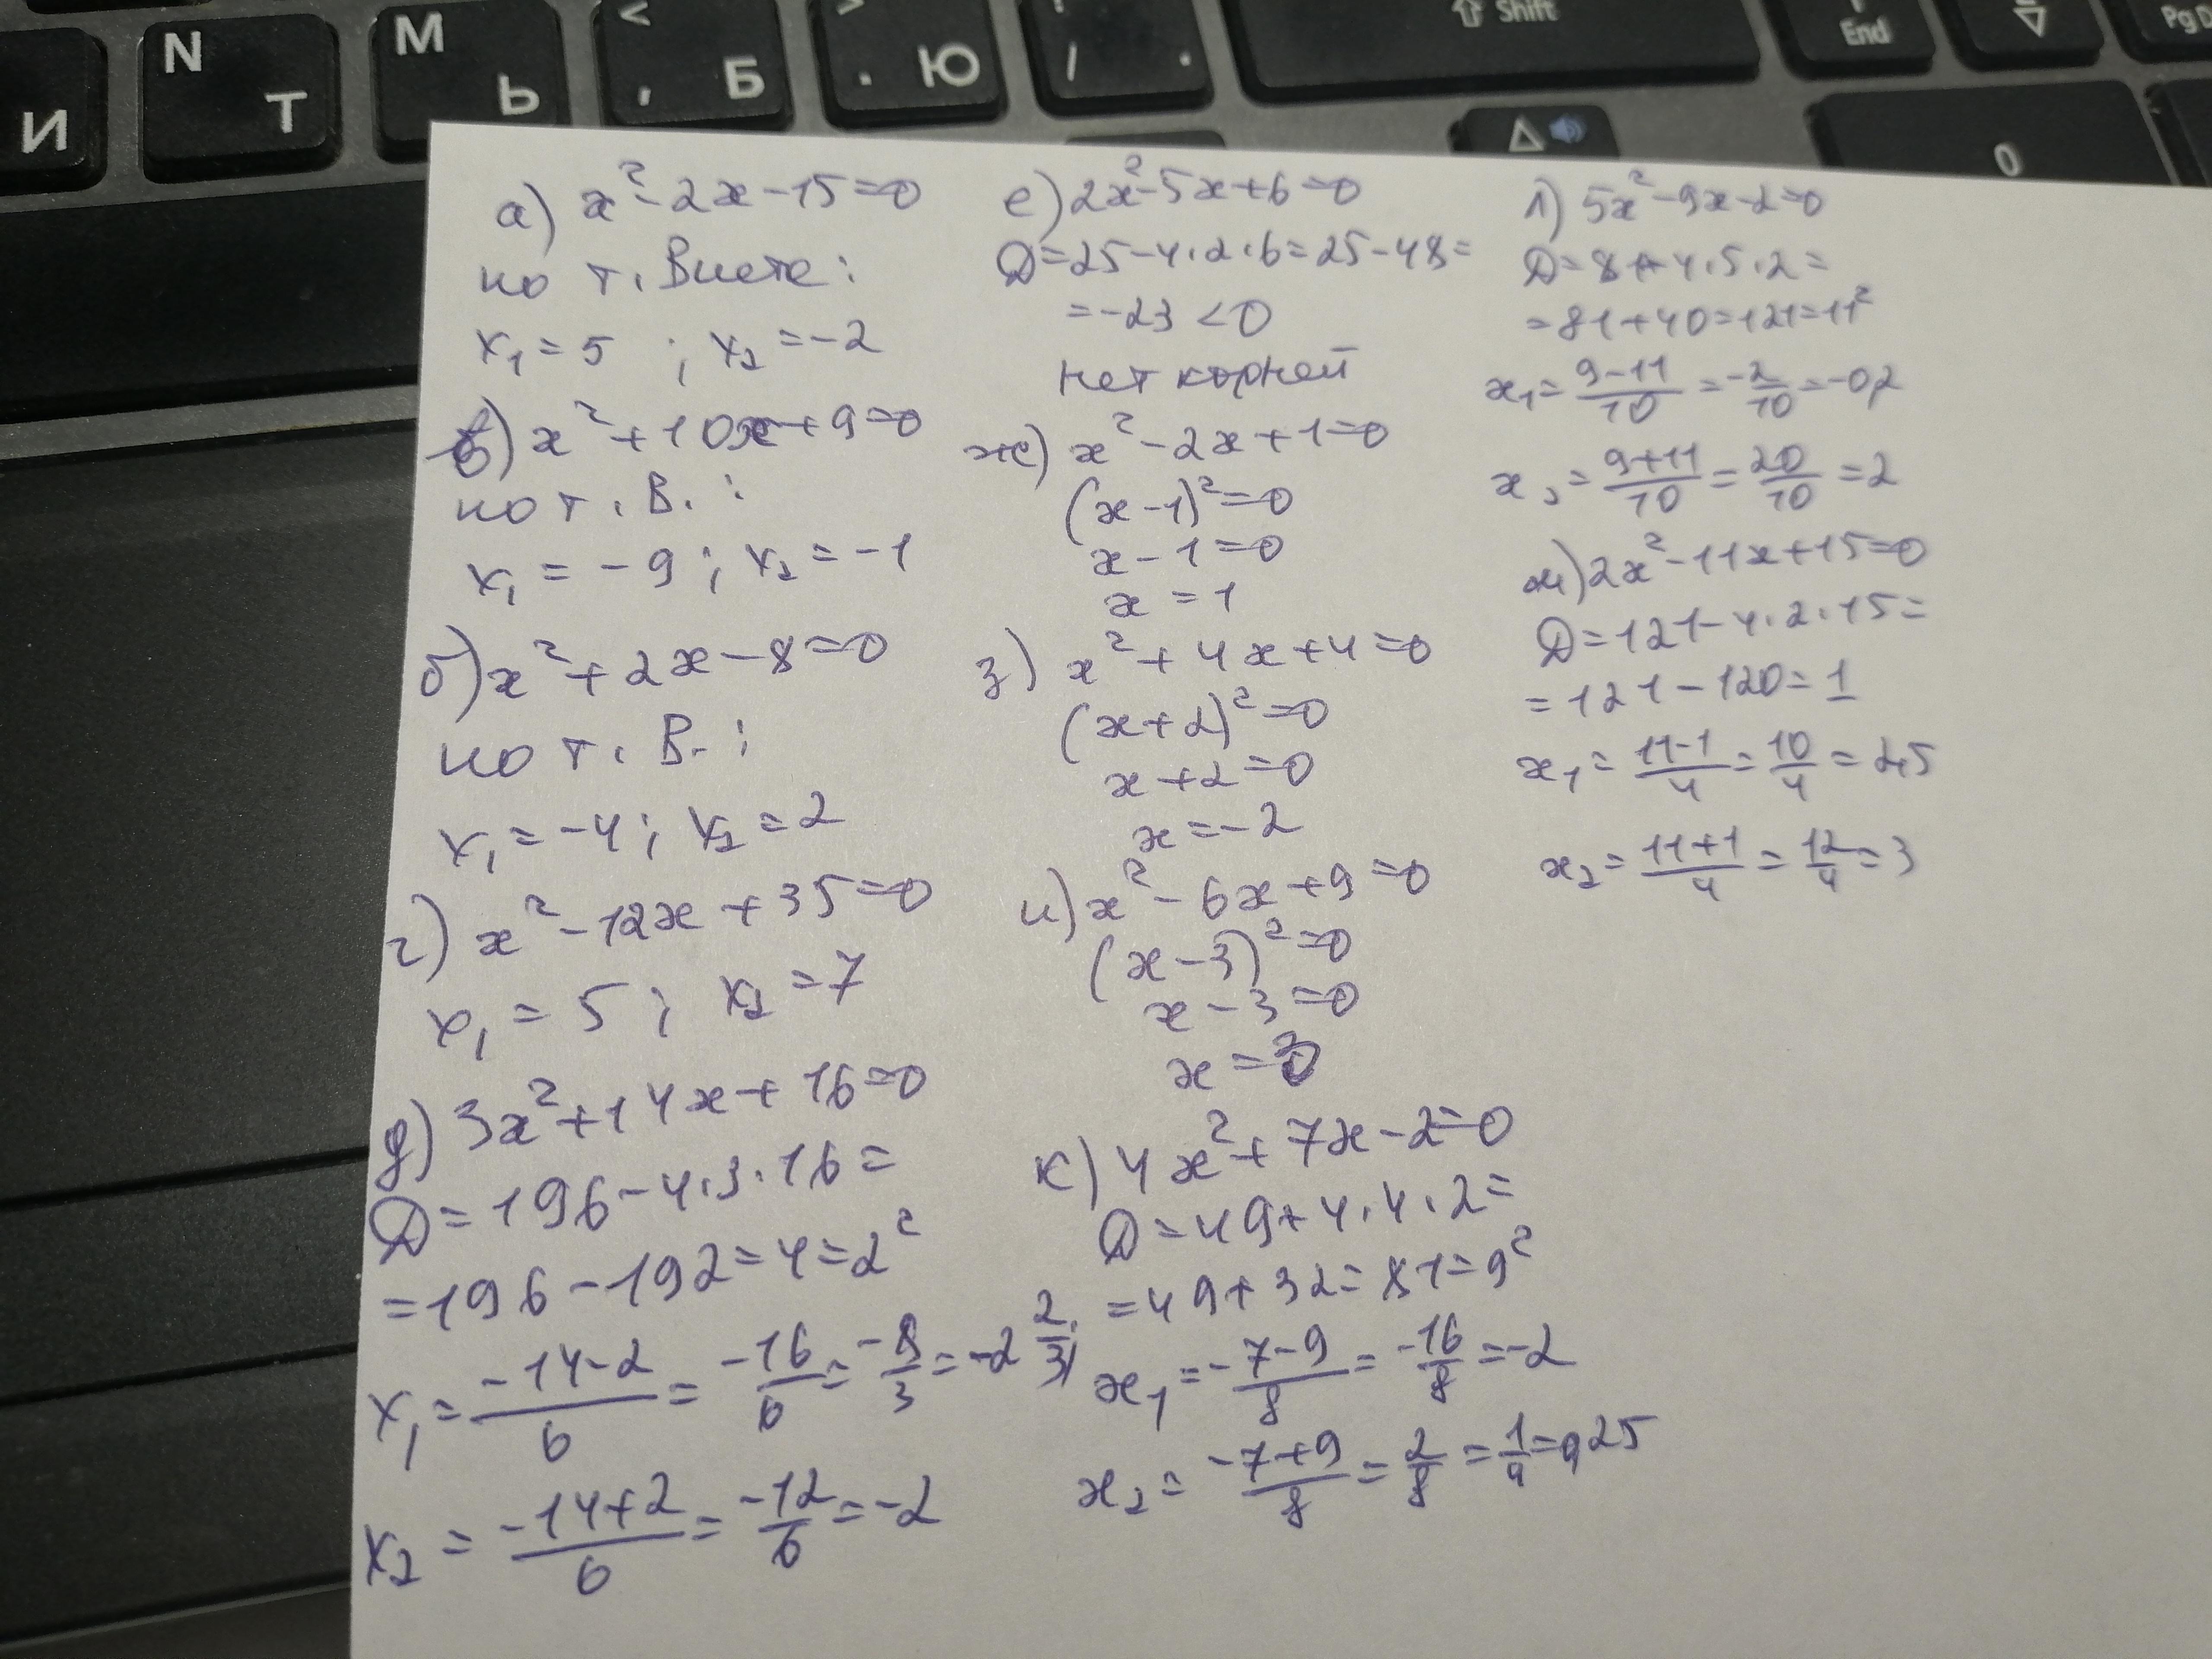 N
M
<
>
/
⇧ Shift
End
Pg D
И
Т
Ь
,
Б
.
Ю
.
0
а) x²-2x-15=0
по т. Виета:
x₁=5 ; x₂=-2
в) x²+10x+9=0
по т. В. :
x₁=-9 ; x₂=-1
б) x²+2x-8=0
по т. В. :
x₁=-4 ; x₂=2
г) x²-12x+35=0
x₁=5 ; x₂=7
д) 3x²+14x+16=0
D=196-4·3·16=
=196-192=4=2²
x₁=-14-2/6=-16/6=-8/3=-2 2/3;
x₂=-14+2/6=-12/6=-2
е) 2x²-5x+6=0
D=25-4·2·6=25-48=
=-23<0
нет корней
ж) x²-2x+1=0
(x-1)²=0
x-1=0
x=1
з) x²+4x+4=0
(x+2)²=0
x+2=0
x=-2
и) x²-6x+9=0
(x-3)²=0
x-3=0
x=3
к) 4x²+7x-2=0
D=49+4·4·2=
=49+32=81=9²
x₁=-7-9/8=-16/8=-2
x₂=-7+9/8=2/8=1/4=0,25
л) 5x²-9x-2=0
D=81+4·5·2=
=81+40=121=11²
x₁=9-11/10=-2/10=-0,2
x₂=9+11/10=20/10=2
м) 2x²-11x+15=0
D=121-4·2·15=
=121-120=1
x₁=11-1/4=10/4=2,5
x₂=11+1/4=12/4=3